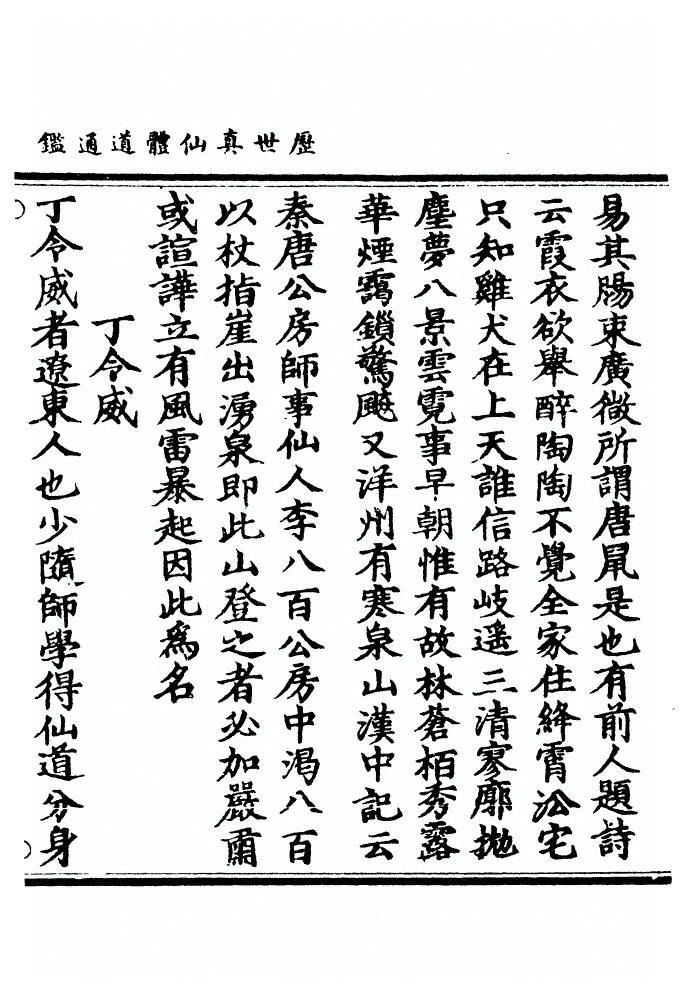 歷世真仙體道通鑑
易其腸束廣微所謂唐鼠是也有前人題詩
云霞衣欲舉醉陶陶不覺全家住絳霄拔宅
只知雞犬在上天誰信路岐遙三清寥廓拋
塵夢八景雲霓事早朝惟有故林蒼栢秀露
華煙靄鎖驚飈又洋州有寒泉山漢中記云
秦唐公房師事仙人李八百公房中渴八百
以杖指崖出湧泉即此山登之者必加嚴肅
或諠譁立有風雷暴起因此為名
丁令威
丁令威者遼東人也少隨師學得仙道分身